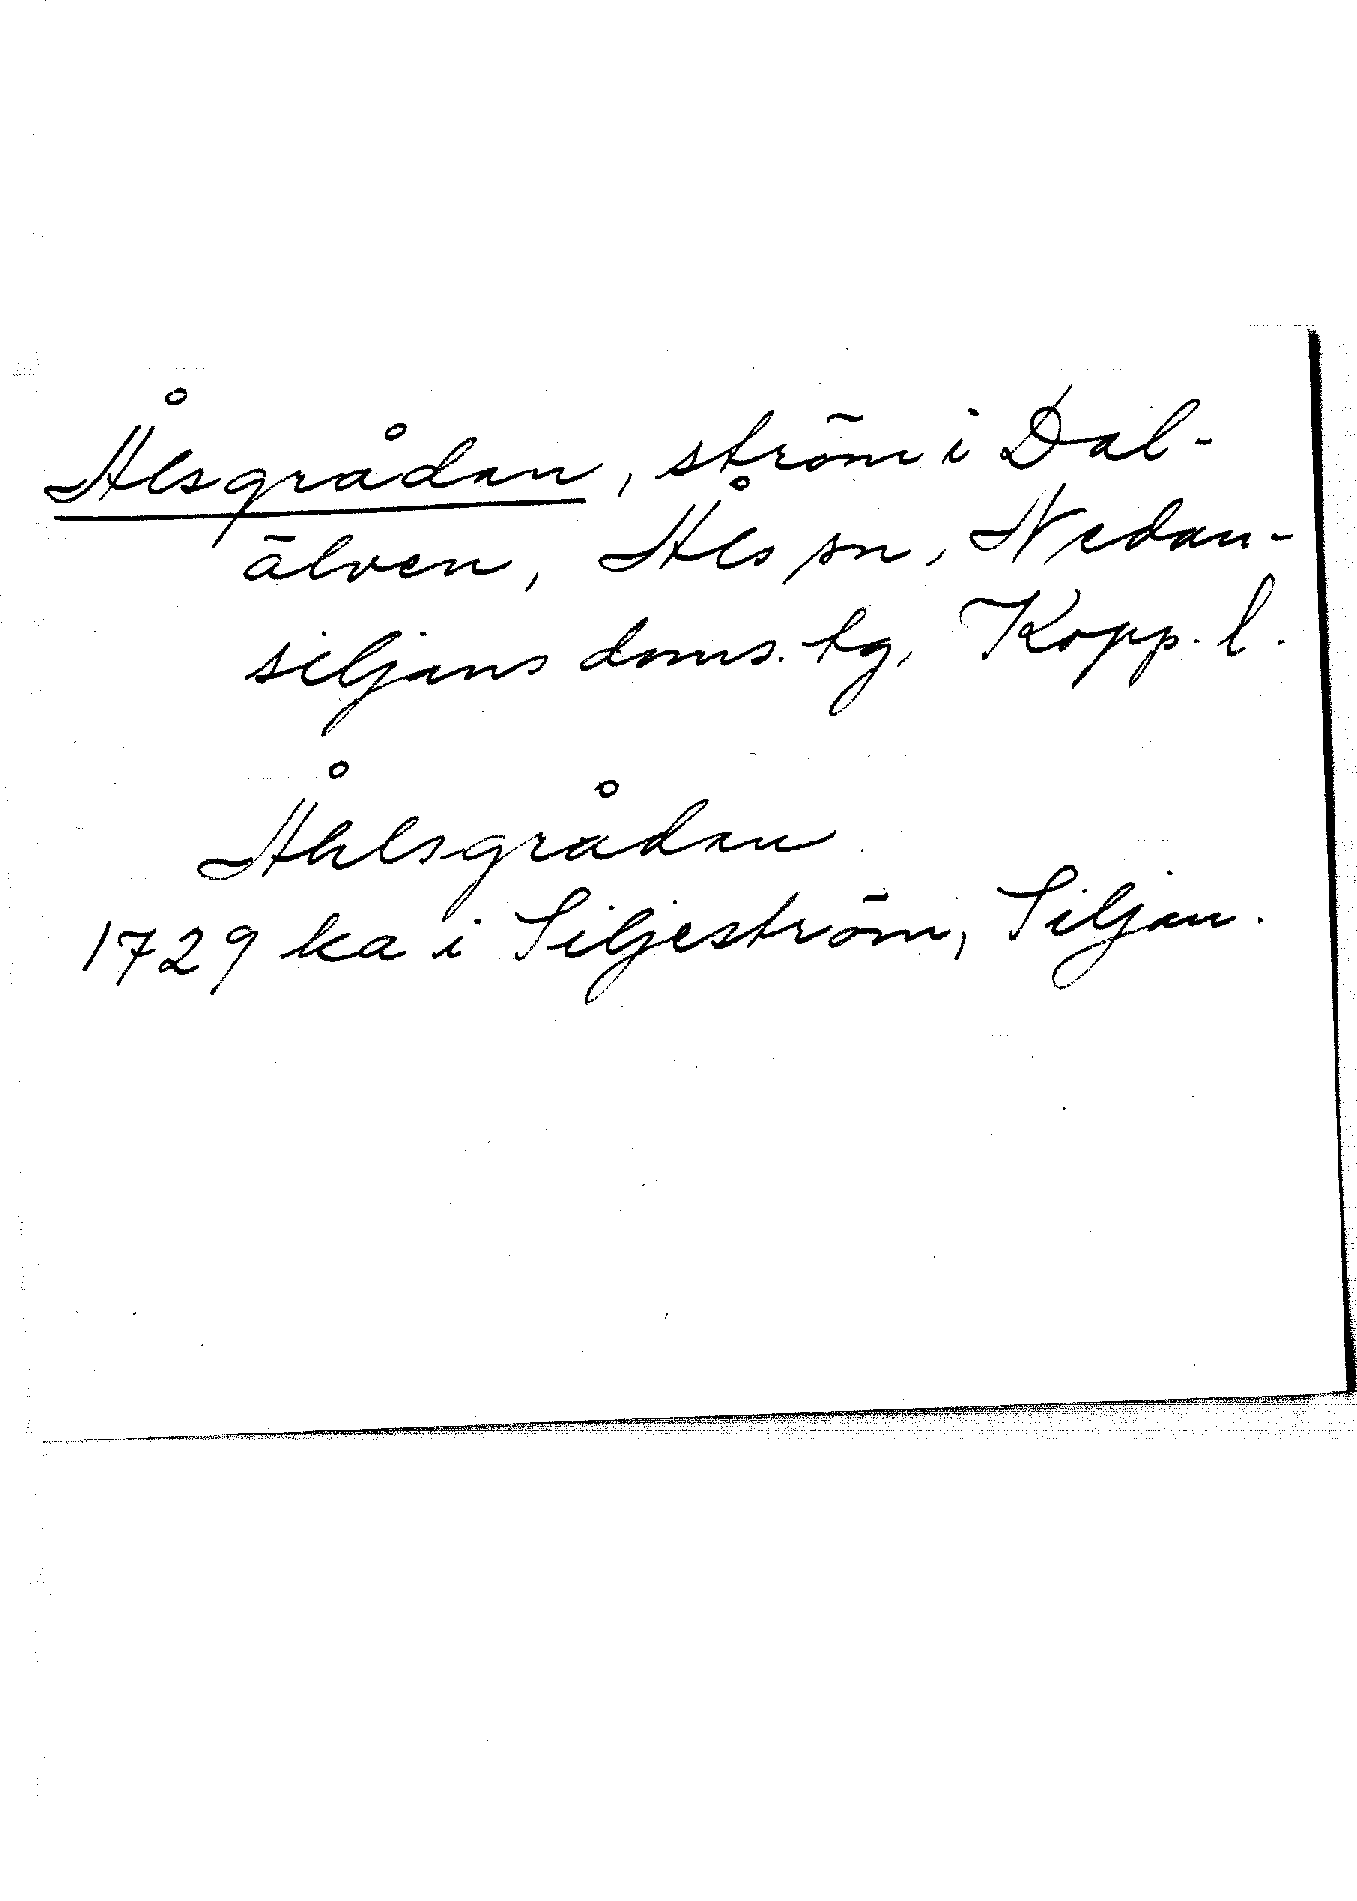 Ålsgrådan, ström i Dal-
älven, Åls sn, Nedan-
siljans doms. tg, Kopp. l.
Åhlsgrådan
1729 ka i Siljeström, Siljan.